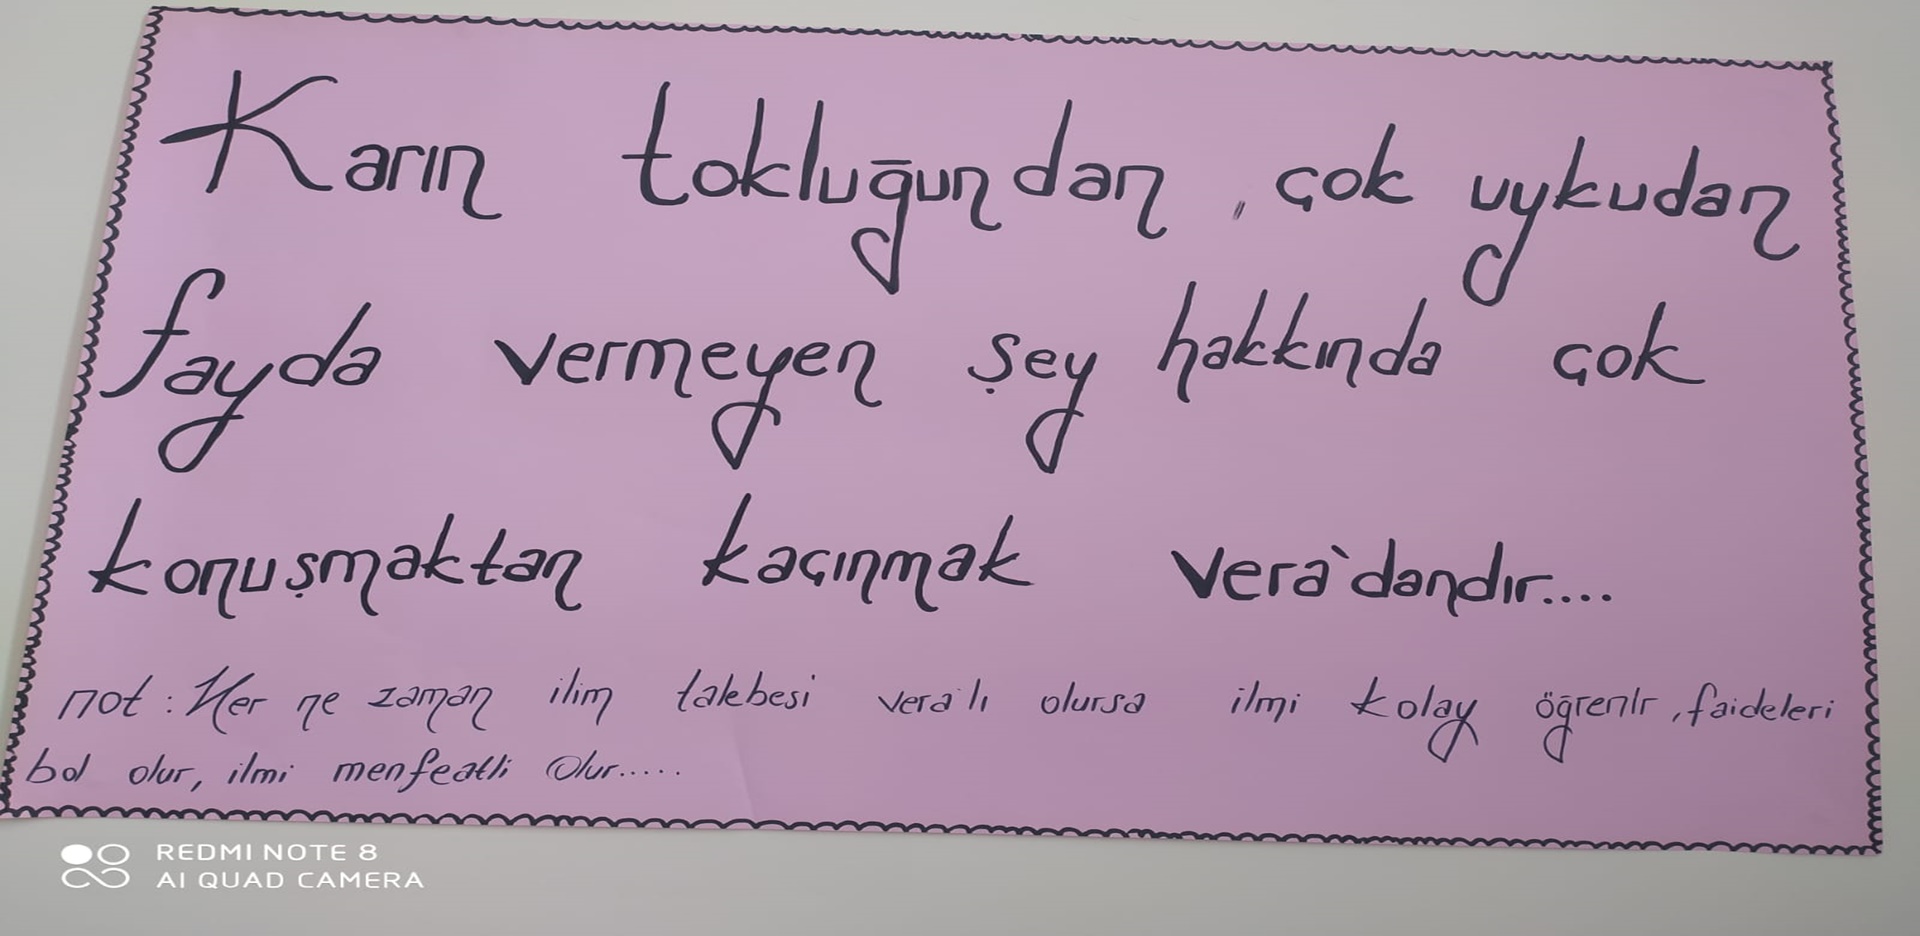 Karın tokluğundan, çok uykudan
fayda vermeyen şey hakkında çok
konuşmaktan kaçınmak vera'dandır....
not: Her ne zaman ilim talebesi vera'lı olursa ilmi kolay öğrenir, faideleri
bol olur, ilmi menfeatli olur.....
REDMI NOTE 8
AI QUAD CAMERA